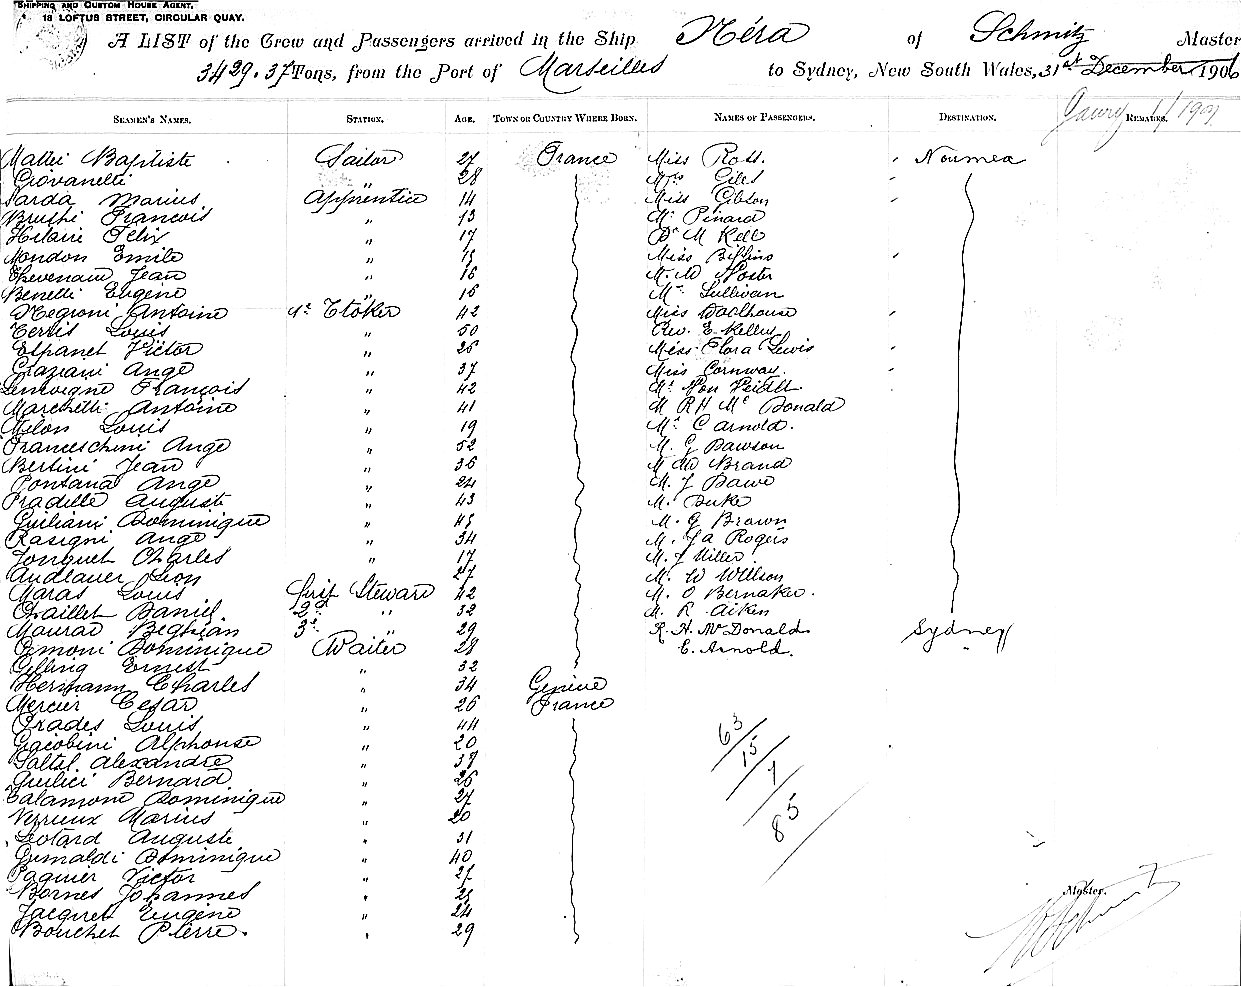 SHIPPING AND CUSTOM HOUSE AGENT,
18 LOFTUS STREET, CIRCULAR QUAY.
A LIST of the Crew and Passengers arrived in the Ship Néra of Schmitz Master
3429.37 Tons, from the Port of Marseilles to Sydney, New South Wales, 31st December 1906
SEAMEN'S NAMES. STATION. AGE. TOWN OR COUNTRY WHERE BORN. NAMES OF PASSENGERS. DESTINATION. REMARKS. 1/1907
Mattei Baptiste Sailor 27 France Miss Ross. Noumea
Giovanelli " 28 Mrs Giles
Sarda Marius Apprentice 14 Miss Gibson
Brushi Francois " 13 Mr Pinard
Hilaire Félix " 17 Dr M Kell
Mondon Emile " Miss Biffins
Thevenard Jean " 16 M. W
Benelli Eugène " 16 Mr Sullivan
Negroni Antoine Stoker 42 Miss Doolhouse
Louis " 50 Rev. E. Kellus
Espanet Victor " 26 Miss Flora Lewis
Graziani Ange " 37 Miss Cornway.
Lemoigne François " 42 Mr Von
Marchetti Antoine " 41 M R H Mc Donald
Milon Louis " 19 Mr C Arnold.
Franceschini Ange " 52 M. G Dawson
Bertini Jean " 36 M W Brand
Fontana Ange " 24 M. J Dawe
Pradelle Auguste " 43 M. Duke
Giuliani Dominique " M. G Brown
Rasigni Ange " 34 M. Ja Rogers
Jonquet Charles " 17 M. J Miller.
Andlauer Léon 27 M. W Willson
Maras Louis First Steward 42 M. O Bernaker.
Chaillet Daniel 2d " 32 M. R. Aitken
Maurad Beghian 3d " 29 R. H. McDonald Sydney
Simoni Dominique Waiter 28 C. Arnold. "
Gelling Ernest " 32
Hermann Charles " 34 Genève
Mercier Cesar " 26 France
Prades Louis " 44
Giacobini Alphonse " 20
Saltal Alexandre " 39
Giulici Bernard " 26
Calamoni Dominique " 27
Verrieux Marius " 20
Leotard Auguste " 31
Grimaldi Dominique " 40
Paquier Victor " 27
Bornes Johannes "
Jacquet Eugène " 24
Bouchet Pierre. " 29
63
15
7
85
Master.